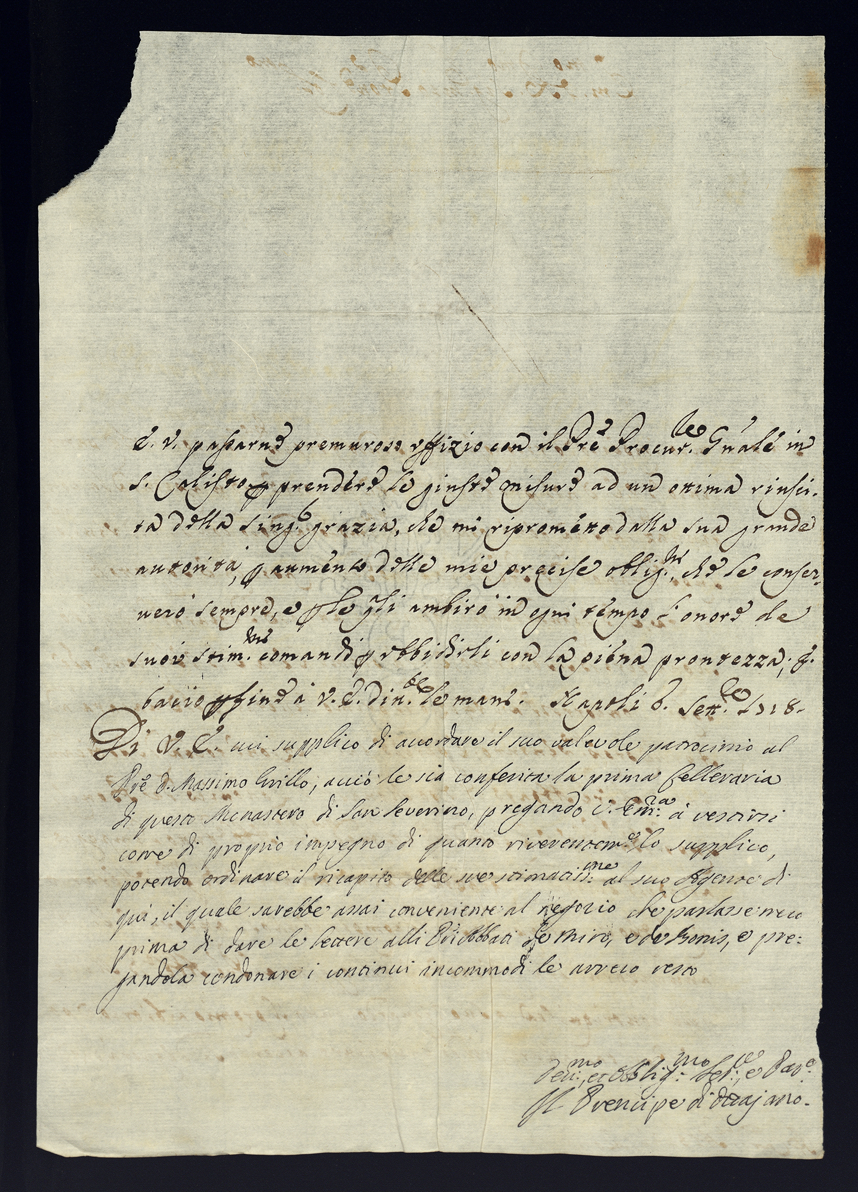 E. V. passarne premuroso uffizio con il Pre Procur.le Gnale in
S. Calisto p prendere le giuste misure ad un ottima riusci-
ta della sing.e grazia, che mi riprometto dalla sua grande
autorità, p aumento delle mie precise oblig.ni, che le conser-
verò sempre, e p le gli ambirò in ogni tempo l'onore de
suoi stim.mi comandi p obbidirli con la piena prontezza; e
bacio p fine à V. E. di le mani. Napoli 6. Sett.re 1718.
Di V. E. cui supplico di accordare il suo valevole patrocinio al
Pre D. Massimo Grillo, acciò le sia conferita la prima Celleraria
di questo Monastero di San Severino, pregando V. Em.za à vestirsi
come di proprio impegno di quanto riverentem.e lo supplico,
potendo ordinare il ricapito delle sue stimatis.me al suo Agente di
quà, il quale sarebbe assai conveniente al negozio che parlasse meco
prima di dare le lettere alli PP. Abbati e de Bonis, e pre-
gandola condonare i continui incommodi le arreco resto
Dev.mo, et Obblig.mo Ser.re, e Par.e
Il Prencipe di Ottajano.